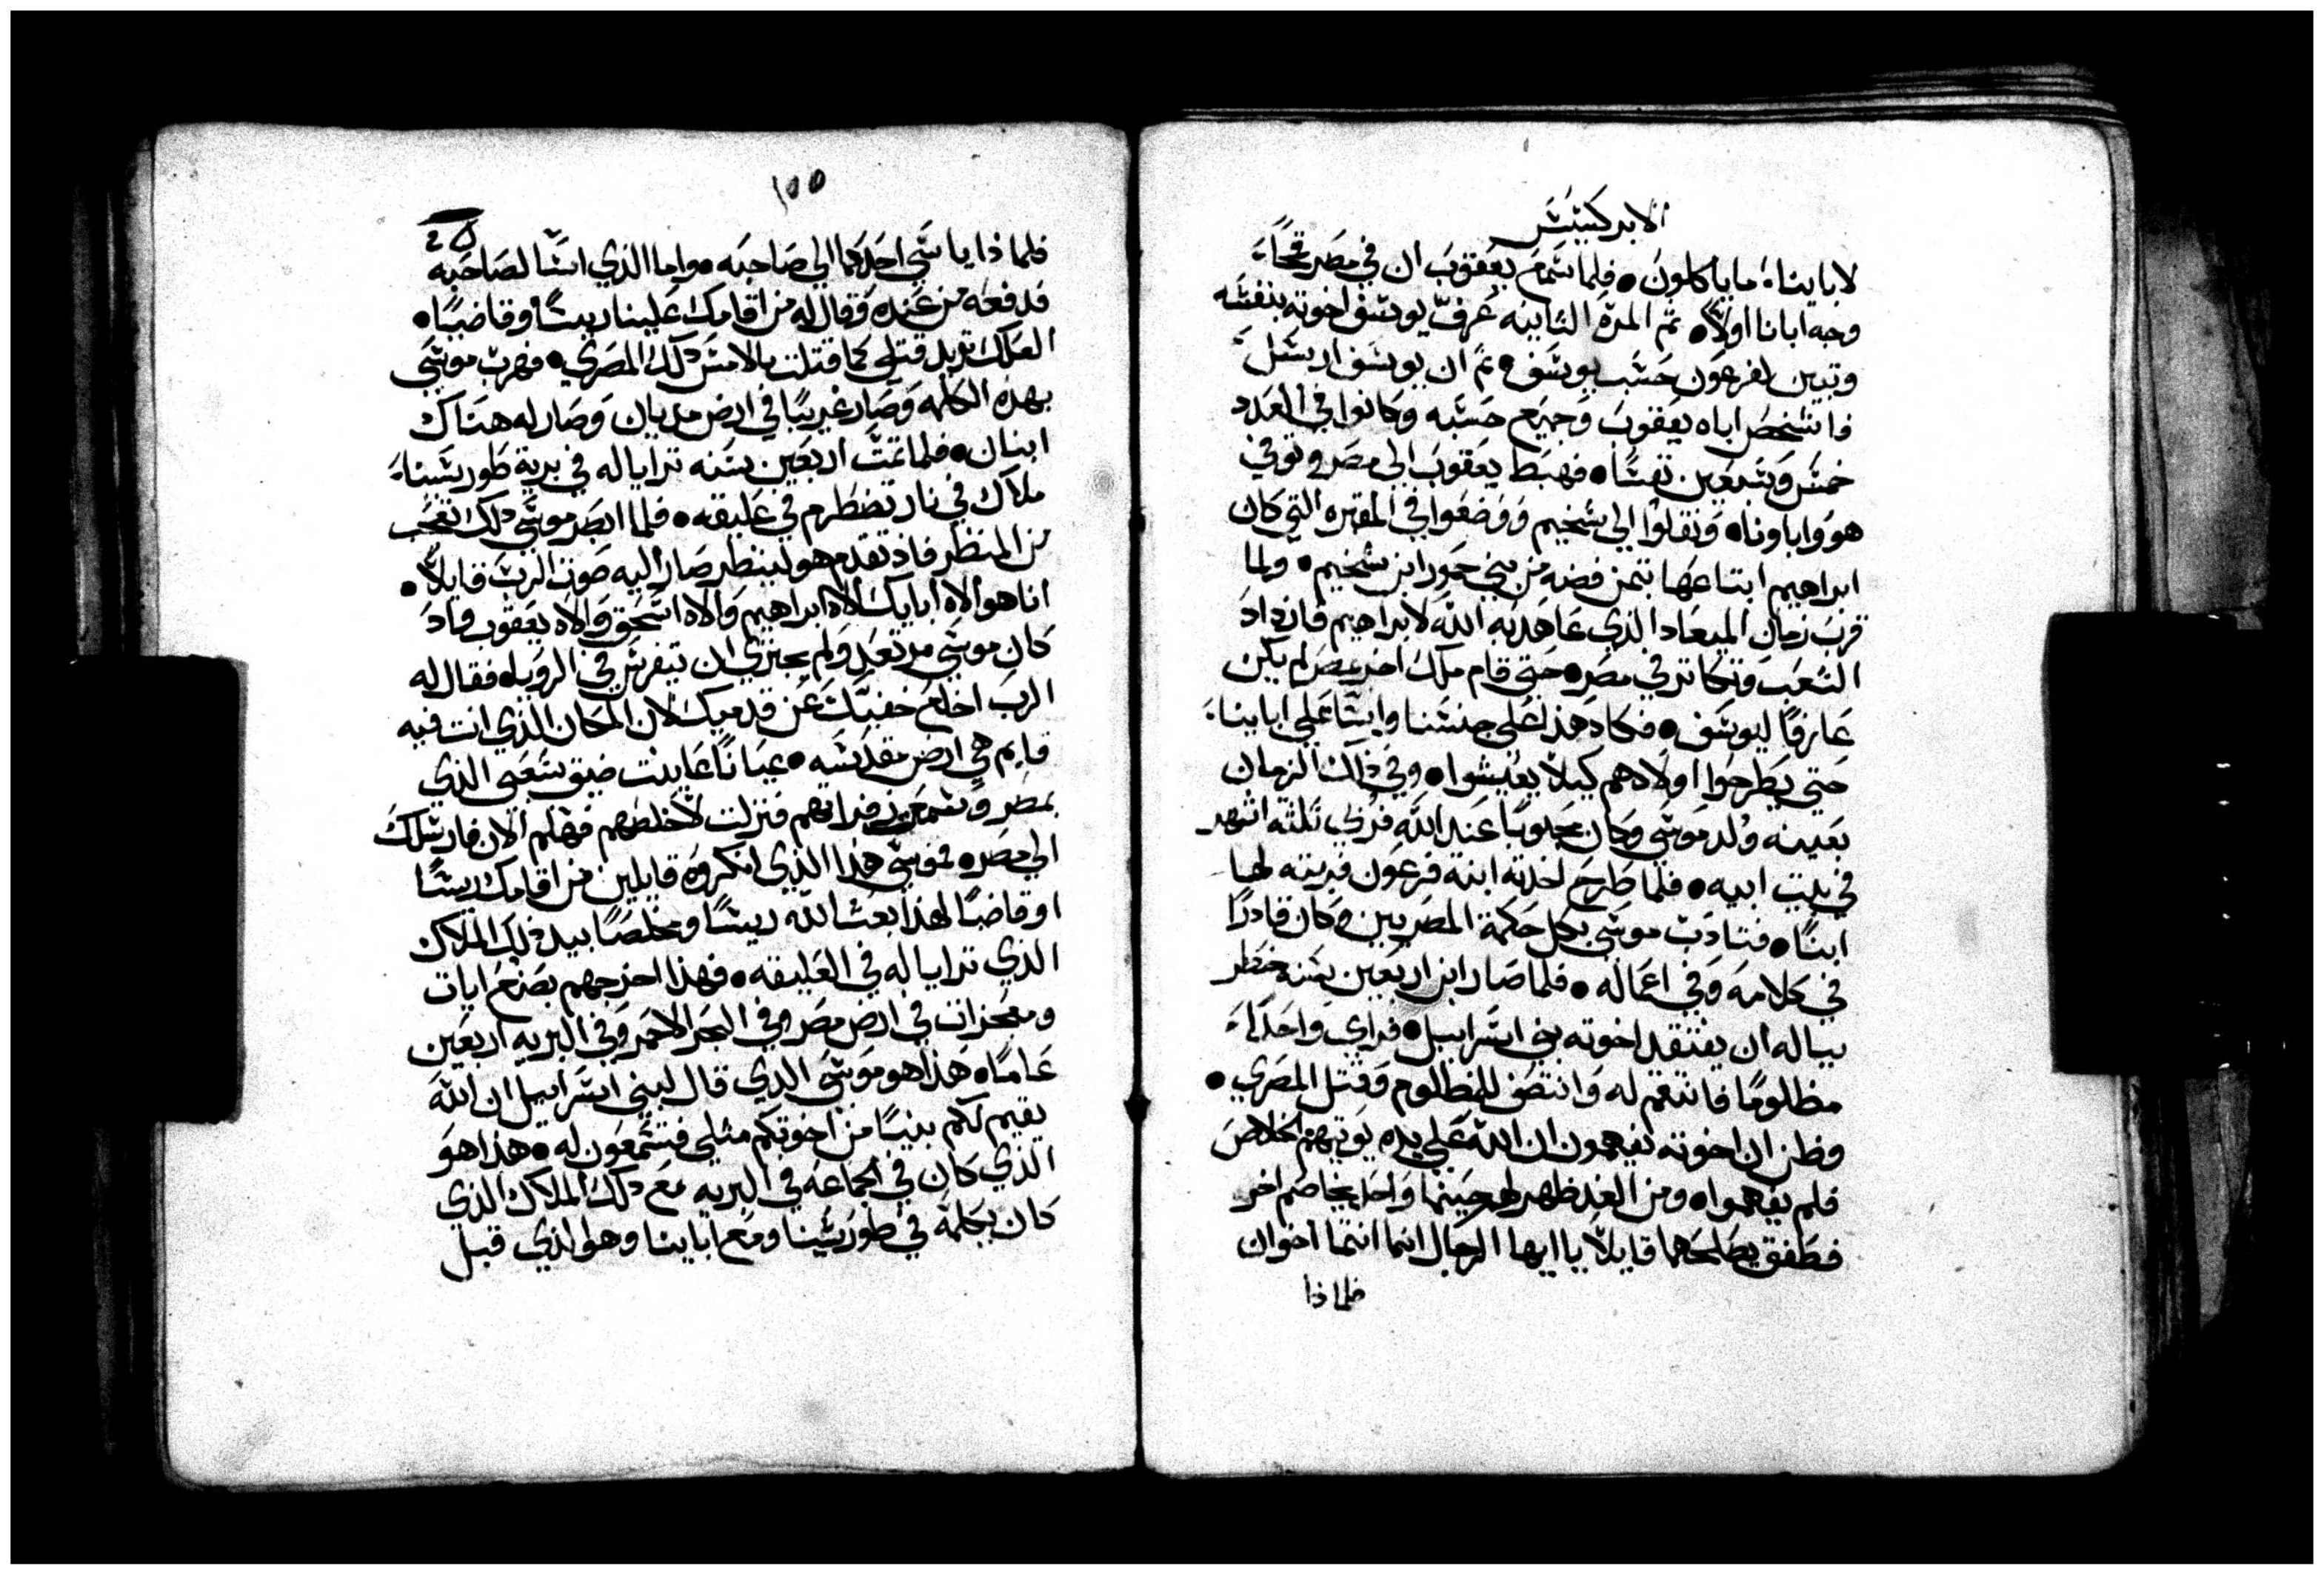 الابركسيس
لاباينا، ما ياكلون. فلما سمع يعقوب ان في مصر قمحًا،
وجه ابانا اولًا. ثم المرة الثانيه عرف يوسف اخوته بنفسه
وتبين لفرعون حسب يوسف. ثم ان يوسف ارسل
فاستحضر اباه يعقوب وجميع حسبه وكانوا في العدد
خمس وسبعين نفسًا. فهبط يعقوب الى مصر وتوفي
هو واباونا. ونقلوا الي شخيم ووضعوا في المقبره التي كان
ابراهيم ابتاعها بثمن فضه من بني حمور ابن شخيم. ولما
قرب زمان الميعاد الذي عاهد به الله لابراهيم فازداد
الشعب وتكاثر في مصر. حتي قام ملك اخر بمصر لم يكن
عارفًا ليوسف. فكاد هذا على جنسنا واسا على اباينا،
حتي يطرحوا اولادهم كيلا يعيشوا. وفي ذلك الزمان
بعينه ولد موسي وكان محبوبًا عند الله فربي ثلثة اشهر
في بيت ابيه. فلما طرح اخذته ابنة فرعون فربته لها
ابنًا. فتادب موسي بكل حكمة المصريين وكان قادرًا
في كلامه وفي اعماله. فلما صار ابن اربعين سنه خطر
بباله ان يفتقد اخوته بني اسراييل. فراي واحدًا،
مظلومًا فانتقم له وانتصف للمظلوم وقتل المصري.
وظن ان اخوته يفهمون ان الله علي يده يوتيهم الخلاص
فلم يفهموا. ومن الغد ظهر لهم حينما واحد يخاصم اخر
فطفق يصلحهما قايلًا يا ايها الرجال انما انتما اخوان
فلماذا
١٥٥
فلماذا ياسي احدكما الي صاحبه. واما الذي اسا لصاحبه
فدفعه من عنده وقال له من اقامك علينا ريسًا وقاضيًا.
العلك تريد قتلي كما قتلت بالامس ذلك المصري. فهرب موسي
بهذه الكلمه وصار غريبًا في ارض مديان وصار له هناك
ابنان. فلما تمت اربعين سنه ترايا له في برية طور سينا،
ملاك في نار تضطرم في عليقه. فلما ابصر موسي ذلك تعجب
من المنظر فاذ تقدم هو لينظر صار اليه صوت الرب قايلًا.
انا هو الاه ابايك الاه ابراهيم والاه اسحق والاه يعقوب فاذ
كان موسي مرتعد ولم يجتري ان يتفرس في الرويا. فقال له
الرب اخلع خفيك عن قدميك لان المكان الذي انت فيه
قايم هي ارض مقدسه. عيانًا عاينت ضيق شعبي الذي
بمصر وسمعت زفراتهم فنزلت لاخلصهم فهلم الان فارسلك
الي مصر. فموسي هذا الذي انكروه قايلين من اقامك ريسًا
او قاضيًا لهذا بعث الله ريسًا ومخلصًا بيد ذلك الملاك
الذي ترايا له في العليقه. فهذا اخرجهم بصنع ايات
ومعجزات في ارض مصر وفي البحر الاحمر وفي البريه اربعين
عامًا. هذا هو موسي الذي قال لبني اسراييل ان الله
يقيم لكم نبيًا من اخوتكم مثلي فتسمعون له. هذا هو
الذي كان في الجماعه في البريه مع ذلك الملاك الذي
كان يكلمه في طور سينا ومع اباينا وهو الذي قبل